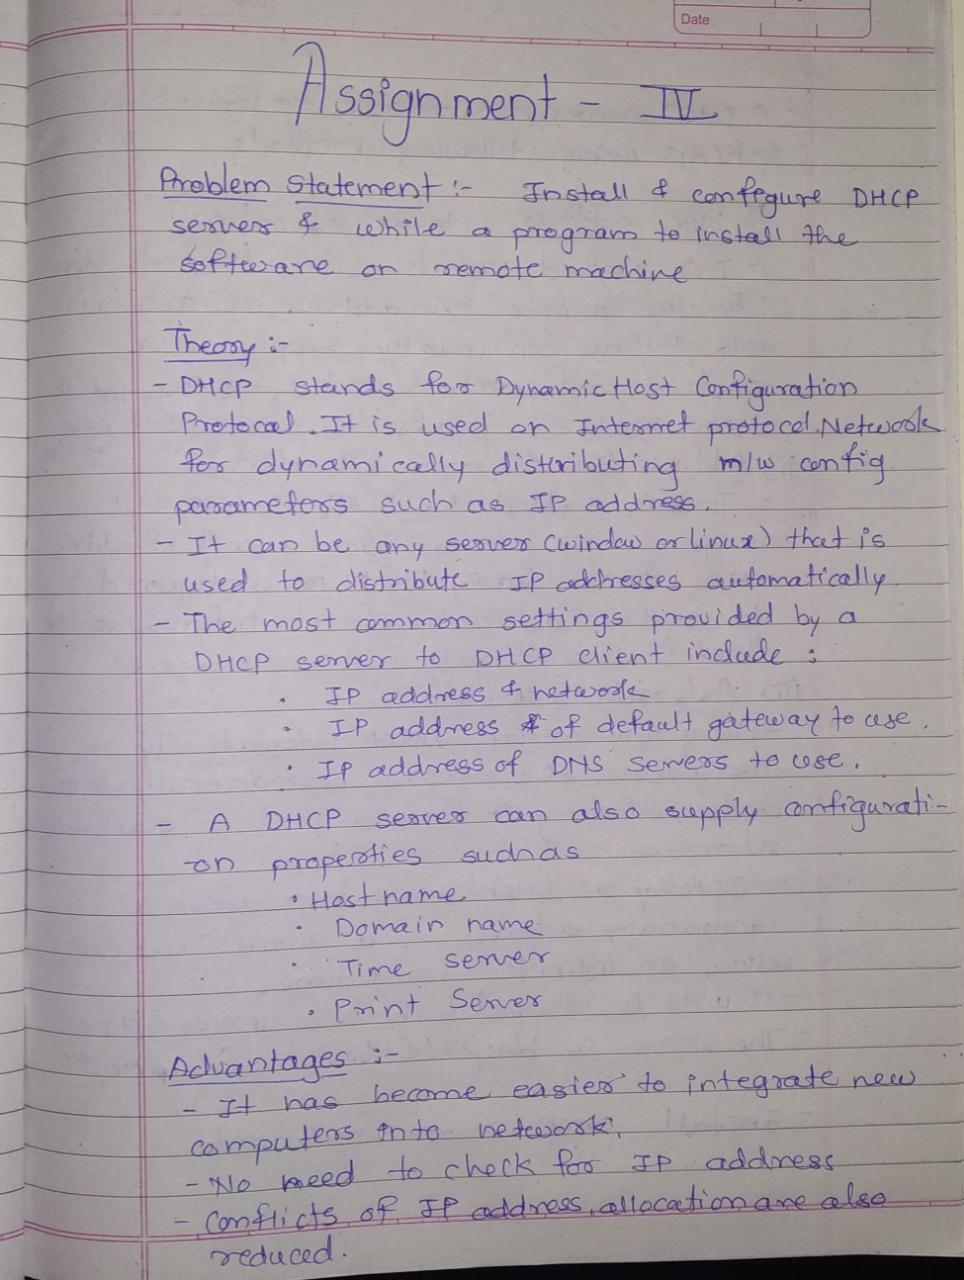 Date
Assignment - IV
Problem statement :- Install & configure DHCP
server & while a program to install the
software on remote machine
Theory :-
- DHCP stands for Dynamic Host Configuration
Protocal. It is used on Internet protocol. Network
for dynamically distributing n/w config
parameters such as IP address.
- It can be any server (window or linux) that is
used to distribute IP addresses automatically.
- The most common settings provided by a
DHCP server to DHCP client include :
• IP address & network
• IP address of default gateway to use.
• IP address of DNS servers to use.
- A DHCP server can also supply configurati-
on properties such as
• Host name
• Domain name
• Time server
• Print Server
Advantages :-
- It has become easier to integrate new
computers into network.
- No need to check for IP address
- Conflicts of IP address allocation are also
reduced.